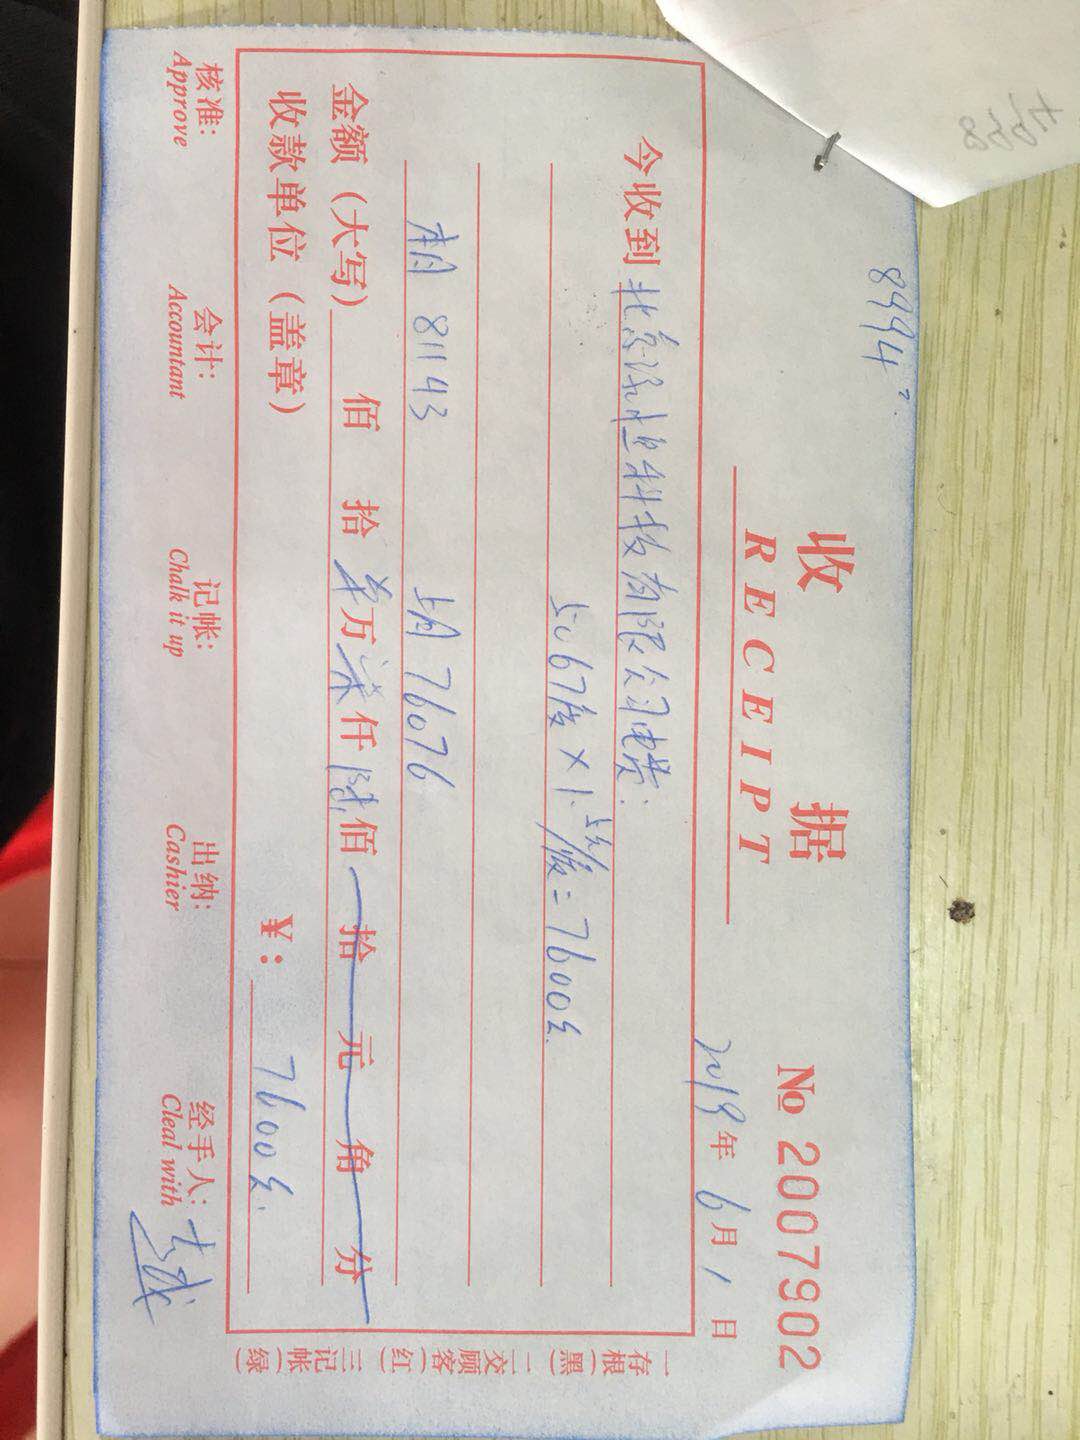 8994
收 据
RECEIPT
№ 2007902
2019年6月1日
今收到北京泺恒科技有限公司电费:
5067度×1.5元/度=7600元
本月 81143 上月 76076
金额（大写） 佰 拾 零万柒仟陆佰 拾 元 角 分
收款单位（盖章） ¥: 7600元
核准: 会计: 记帐: 出纳: 经手人:
Approve Accountant Chalk it up Cashier Cleal with
一存根(黑) 二交顾客(红) 三记帐(绿)